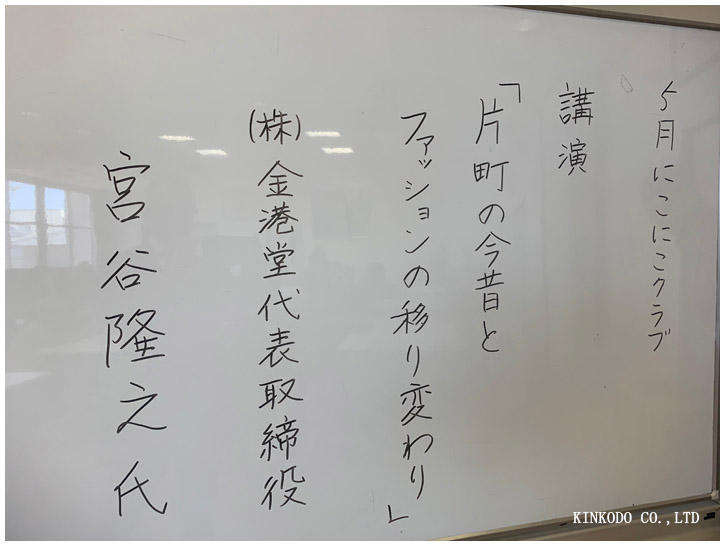 5月にこにこクラブ
講演
「片町の今昔と
ファッションの移り変わり」
(株)金港堂代表取締役
宮谷隆之氏
KINKODO CO.,LTD